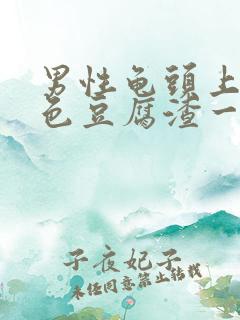 男性龟頭上
色豆腐渣一
子夜妃子
未经同意禁止转载